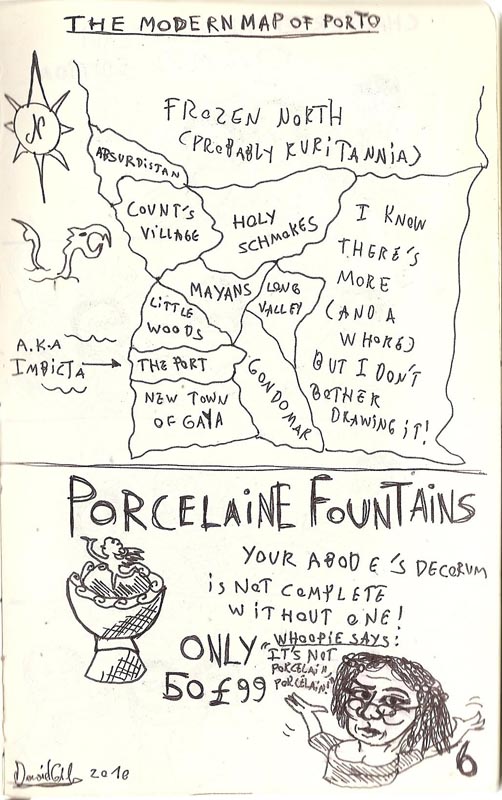 THE MODERN MAP OF PORTO
N
FROZEN NORTH
(PROBABLY RURITANNIA)
ABSURDISTAN
COUNT'S
VILLAGE
HOLY
SCHMOKES
I KNOW
THERE'S
MORE
(AND A
WHORE)
BUT I DON'T
BOTHER
DRAWING IT!
MAYANS
LONG
VALLEY
LITTLE
WOODS
A.K.A
IMBICTA
THE PORT
GONDOMAR
NEW TOWN
OF GAYA
PORCELAINE FOUNTAINS
YOUR ABODE'S DECORUM
IS NOT COMPLETE
WITHOUT ONE!
ONLY
50£99
WHOOPIE SAYS:
IT'S NOT
PORCELAIN,
PORCELAIN!
2010
6